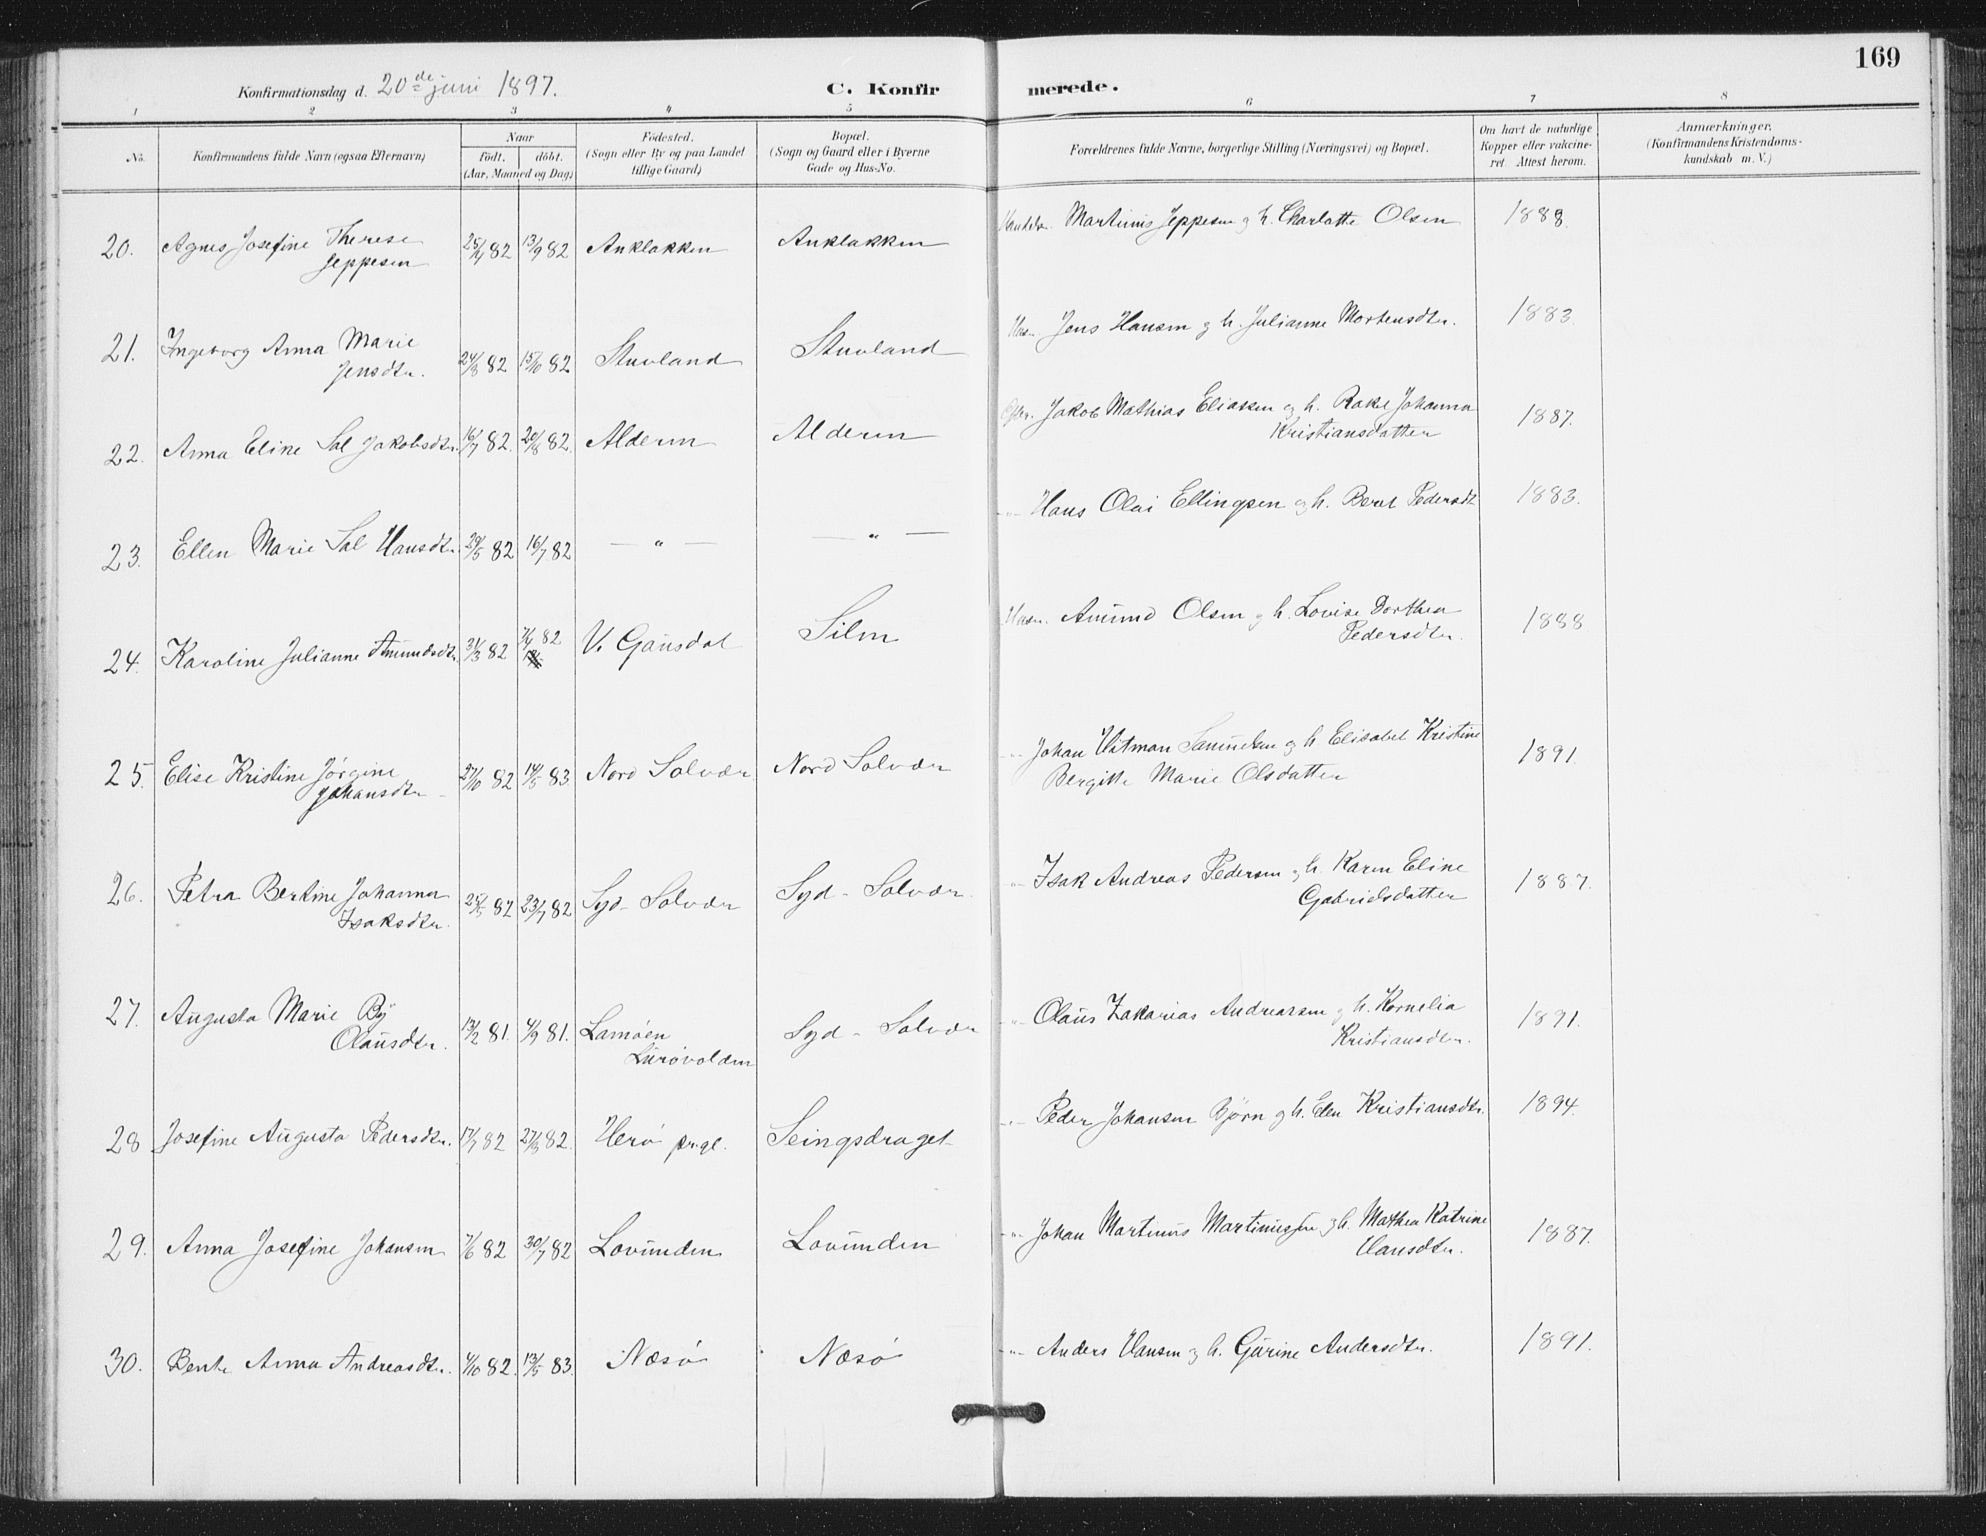 169
Konfirmationsdag d. 20de juni 1897.
C. Konfirmerede.
1 2 3 4 5 6 7 8
No. Konfirmandens fulde Navn (ogsaa Efternavn) Naar født. døbt. (Aar, Maaned og Dag) Fødested. (Sogn eller By og paa Landet tillige Gaard) Bopæl. (Sogn og Gaard eller i Byerne Gade og Hus-No. Forældrenes fulde Navne, borgerlige Stilling (Næringsvei) og Bopæl. Om havt de naturlige Kopper eller vakcineret. Attest herom. Anmærkninger. (Konfirmandens Kristendomskundskab m. V.)
20. Agnes Josefine Therese Jeppesen 25/4 82 13/9 82 Anklakken Anklakken Martinus Jeppesen og h. Charlotte Olsen 1888
21. Ingeborg Anna Marie Jensdtr. 24/8 82 15/10 82 Stuvland Stuvland Jens Hansen og h. Julianne Mortensdtr. 1883
22. Anna Eline Sal Jakobsdtr. 16/7 82 20/8 82 Alderen Alderen Jakob Mathias Eliassen og h. Rakel Johanna Kristiansdatter 1887.
23. Ellen Marie Sal Hansdtr. 29/5 82 16/7 82 — " — — " — Hans Olai Ellingsen og h. Beret Pedersdt 1883.
24. Karoline Julianne Amundsdtr. 31/3 82 7/4 82 V. Gausdal Silen Amund Olsen og h. Lovise Dorthea Pedersdtr. 1888
25. Elise Kristine Jørgine Johansdtr 27/10 82 14/5 83 Nord Solvær Nord Solvær -"- Johan Vitman Samuelsen og h. Elisabet Kristine Bergitte Marie Olsdatter 1891
26. Petra Bertine Johanna Isaksdtr. 25/5 82 23/7 82 Syd-Solvær Syd-Solvær. -"- Isak Andreas Pedersen og h. Karen Eline Gabrielsdatter 1887.
27. Augusta Marie By Olausdtr. 13/2 81. 4/9 81. Lamøen Lurøvolden Syd-Solvær -"- Olaus Zakarias Andreassen og h. Kornelia Kristiansdtr. 1891.
28 Josefine Augusta Pedersdtr. 17/7 82 27/8 82. Herø prgl. Seingsdraget -"- Peder Johansen Bjørn og h. Elen Kristiansdtr. 1894.
29. Anna Josefine Johansen 7/6 82 30/7 82 Lovunden Lovunden -"- Johan Martinus Martinussen og h. Mathea Katrine Hansdtr. 1887.
30. Bente Anna Andreasdtr. 4/10 82. 13/5 83. Næsø Næsø -"- Anders Hansen og h. Gurine Andersdtr. 1891.